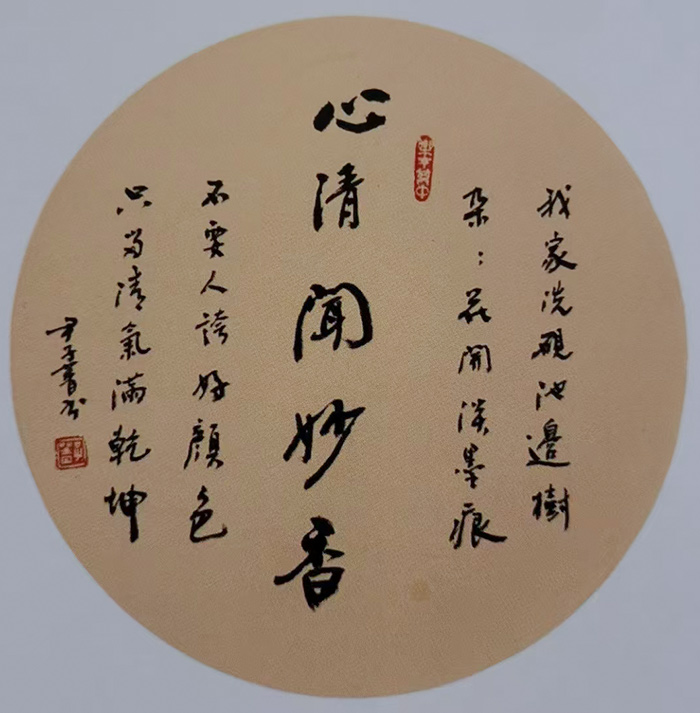 我家洗硯池邊樹
朵々花開淡墨痕
心清聞妙香
不要人誇好顏色
只留清氣滿乾坤